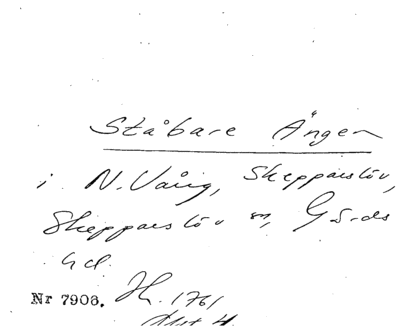 Ståbare Ängen
i N. Vång, Skepparslöv,
Skepparslöv sn, Gärds
hd.
Nr 7908. Jh. 1761
Akt 4.